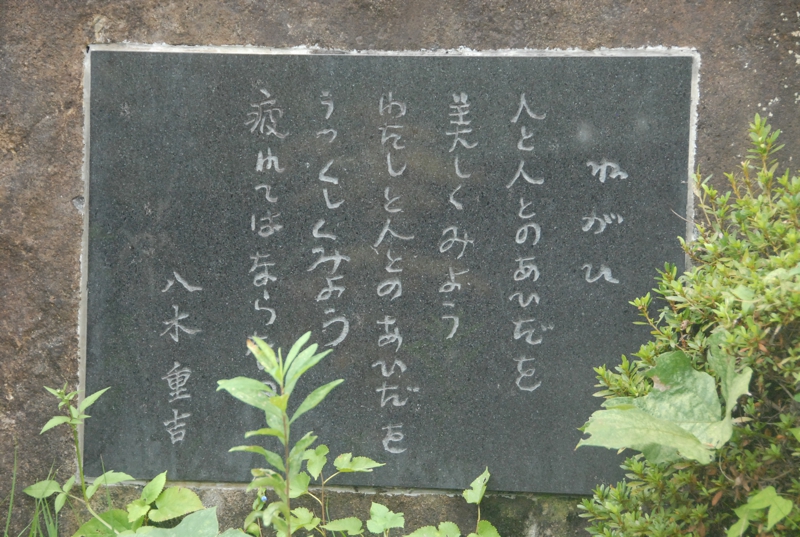 ねがひ
人と人とのあひだを
美しくみよう
わたしと人とのあひだを
うつくしくみよう
疲れてはなら
八木重吉